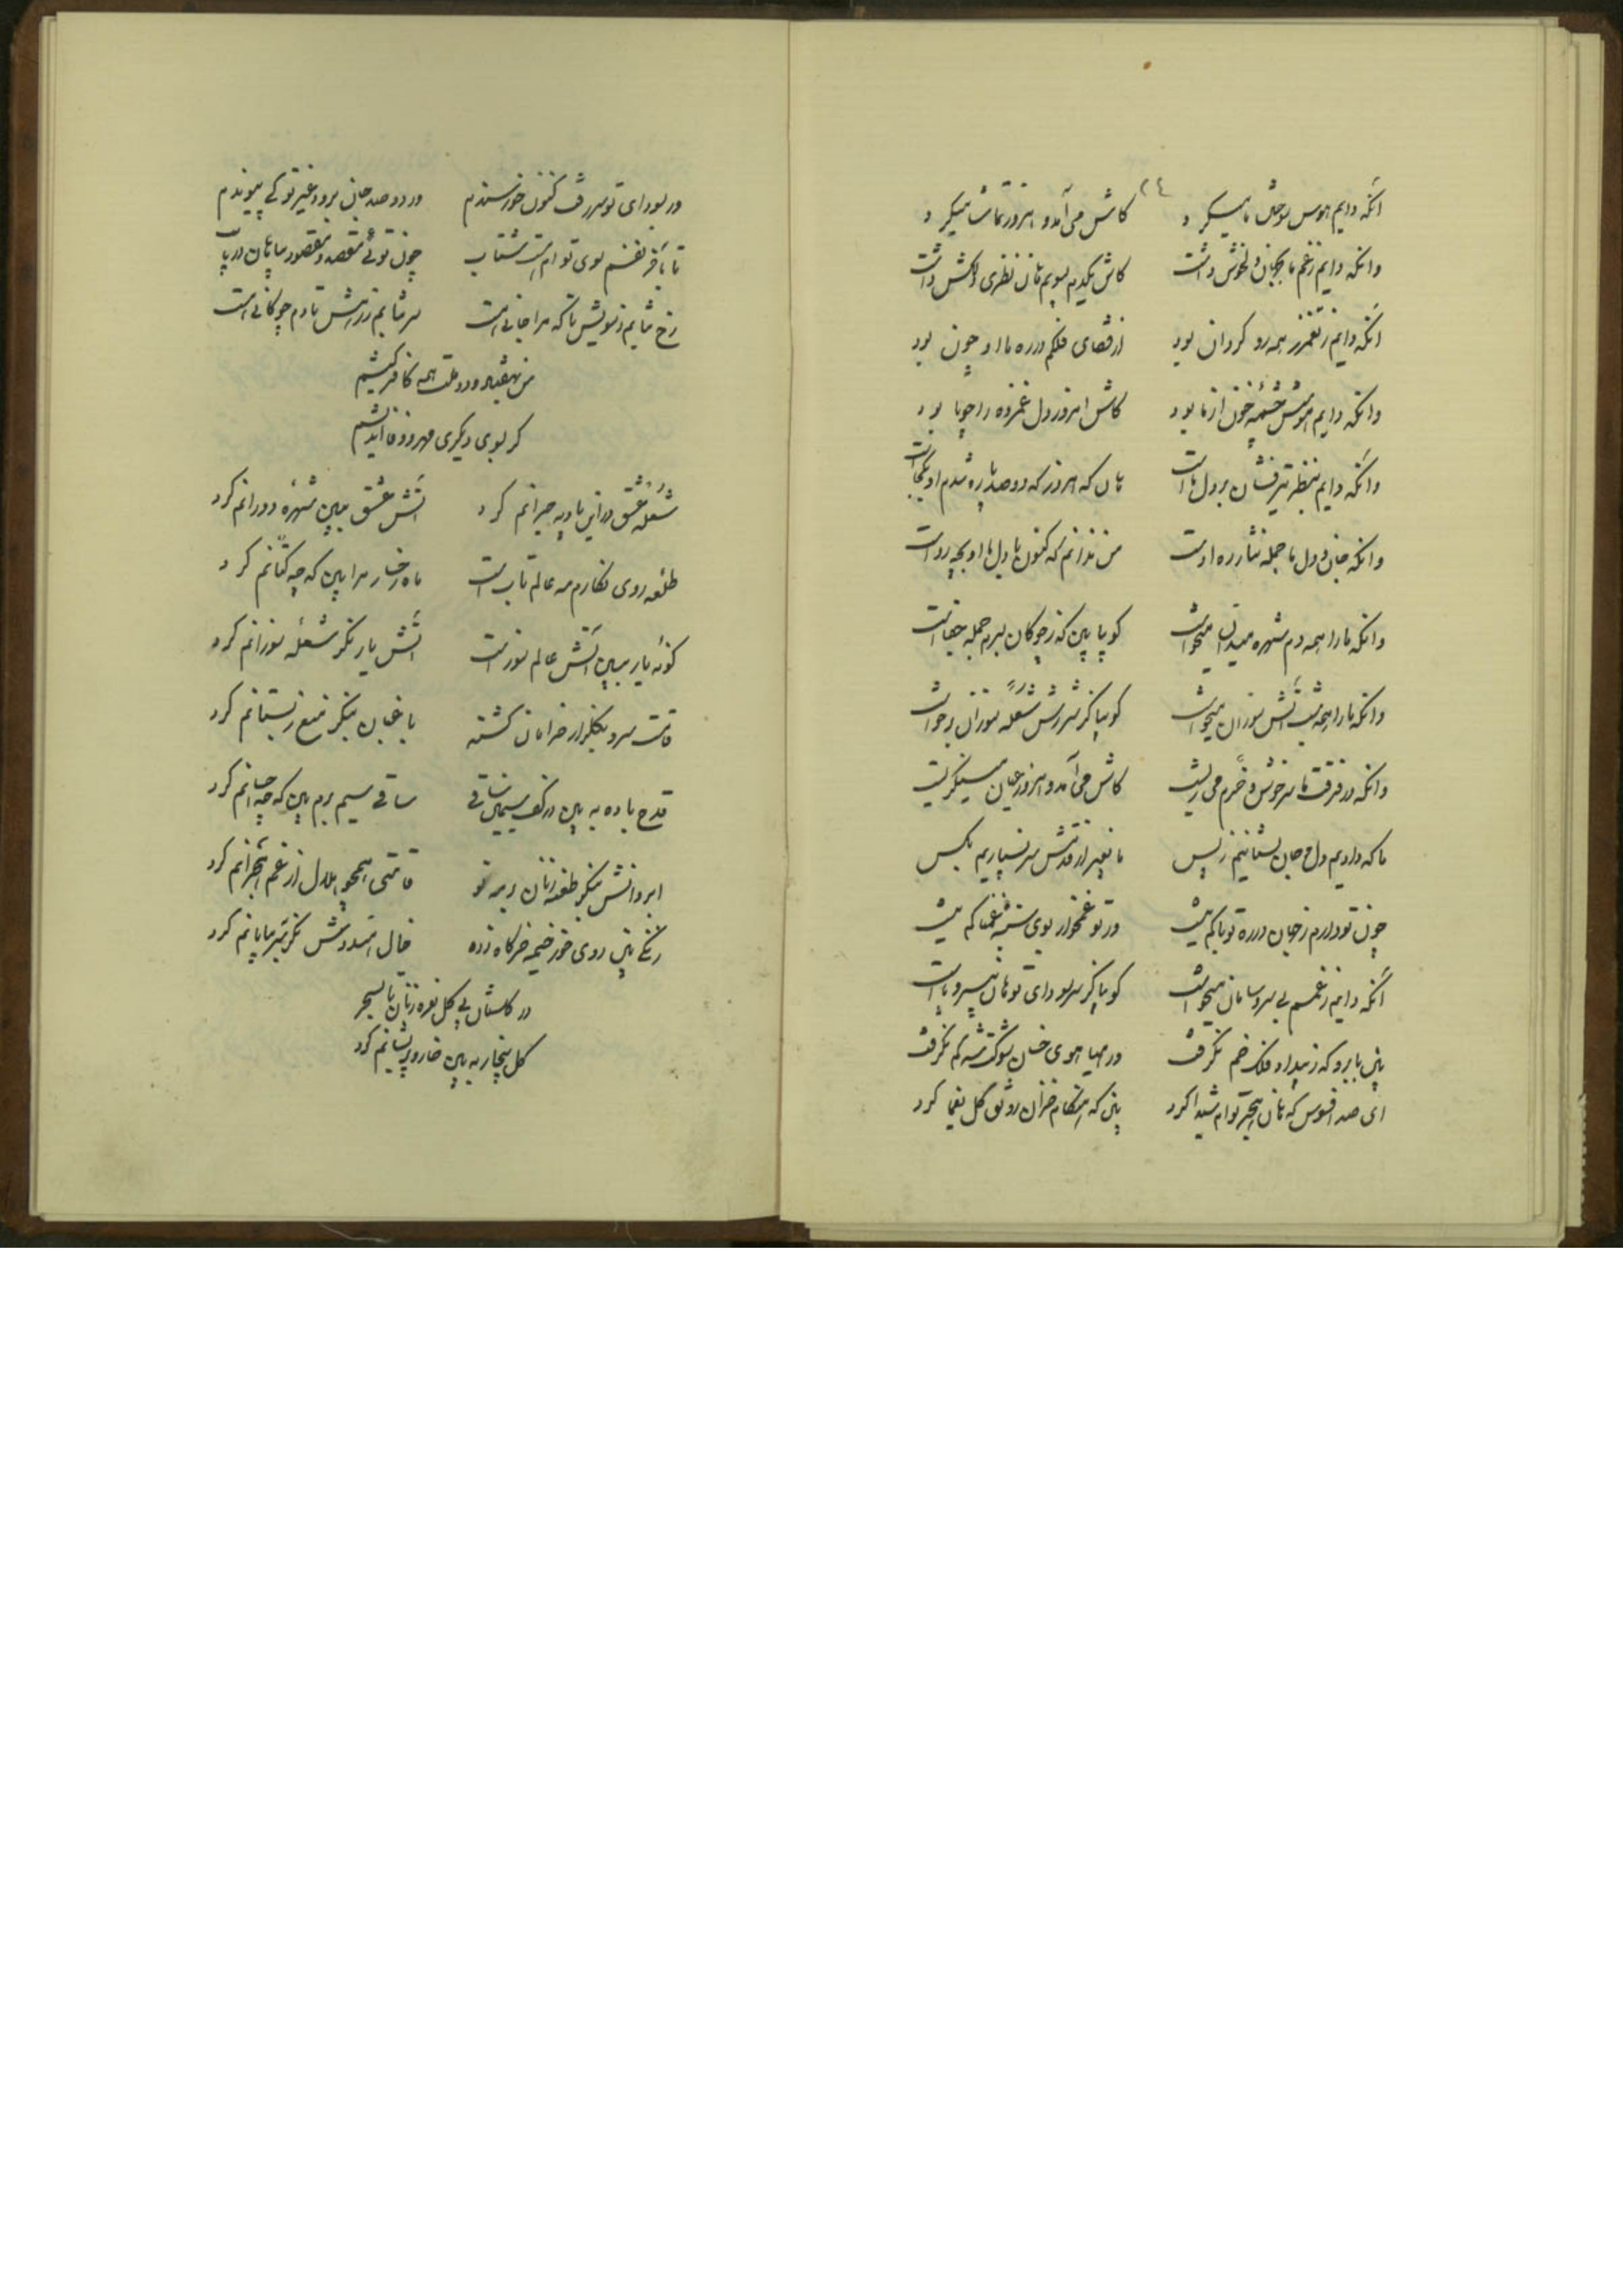 ۲٤
آنکه دایم هوس سوختن ما میکرد کاش می‌آمد و امروز تماشا میکرد
وانکه دایم زغم ما بجهان دلخوش داشت کاش یکدم بسویم هان نظری داشت
آنکه دایم ز همه رو گردان بود از قضای فلکم در ره ما او چون بود
وانکه دایم هوسش چشمه خون از ما بود کاش امروز دل غمزده را جویا بود
وانکه دایم بنظر تیرفشان بر دل ماست هان که امروز که دو صد پاره شدم او بکجاست
وانکه جان و دل ما جمله نثار ره اوست من ندانم که کنون با دل ما او بچه روست
وانکه ما را همه دم شهره میدان میخواست کو بیا بین که ز چوکان بسرم جمله جفاست
وانکه ما را همه شب آتش سوزان میخواست کو بیا کز شررش شعله سوزان برخواست
وانکه در فرقت ما سرخوش و خرم می‌زیست کاش می‌آمد و امروز عیان مینگریست
ما که دادیم دل و جان بستانیم ز پس ما بغیر از قدمش سر نسپاریم بکس
چون تو دارم ز جهان در ره تو باکم نیست ور تو غمخوار بوی غمناکم نیست
آنکه دایم زغمم بی سر و سامان میخواست کو بیا کز سر سودای تو هان بی سر و پاست
بین بابرو که ز بیداد فلک خم نگرفت در هیاهوی خسان شوکت شه کم نگرفت
ای صد افسوس که هان هجر توام شیدا کرد بین که هنگام خزان رونق گل یغما کرد
ور بسودای تو سر رفت کنون خورسندم ور دو صد جان برود غیر تو کی پیوندم
تا بآخر نفسم سوی تو ام هست شتاب چون توئی مقصد و مقصود بیا هان دریاب
رخ نتابم ز سویش تا که مرا جانی هست سر نتابم ز رهش تا دم چوکانی هست
من بعهد و در ملت همه کافر کیشم
کر بوی دیکری مهر و وفا اندیشم
شعله عشق در این بادیه حیرانم کرد آتش عشق ببین شهره دورانم کرد
طلعه روی نکارم مه عالم تاب است ماه رخسار مرا بین که چه کتانم کرد
کونه یار ببین آتش عالم سوز است آتش یار نکر شعله سوزانم کرد
قامت سرو بکلزار خرامان کشته باغبان بنکر منع ز بستانم کرد
قدح باده به بین در کف سیمین ساقی ساقی سیم برم بین که چه انم کرد
ابروانش بنکر طعنه زنان بر مه نو قامتی همچو هلال از غم هجرانم کرد
رنکی بین روی خور خیمه خرکاه زده خال هندوش نکر بیسامانم کرد
در کلستان پی کل نعره زنان تا بسحر
کل بیخار به بین خار و پریشانم کرد